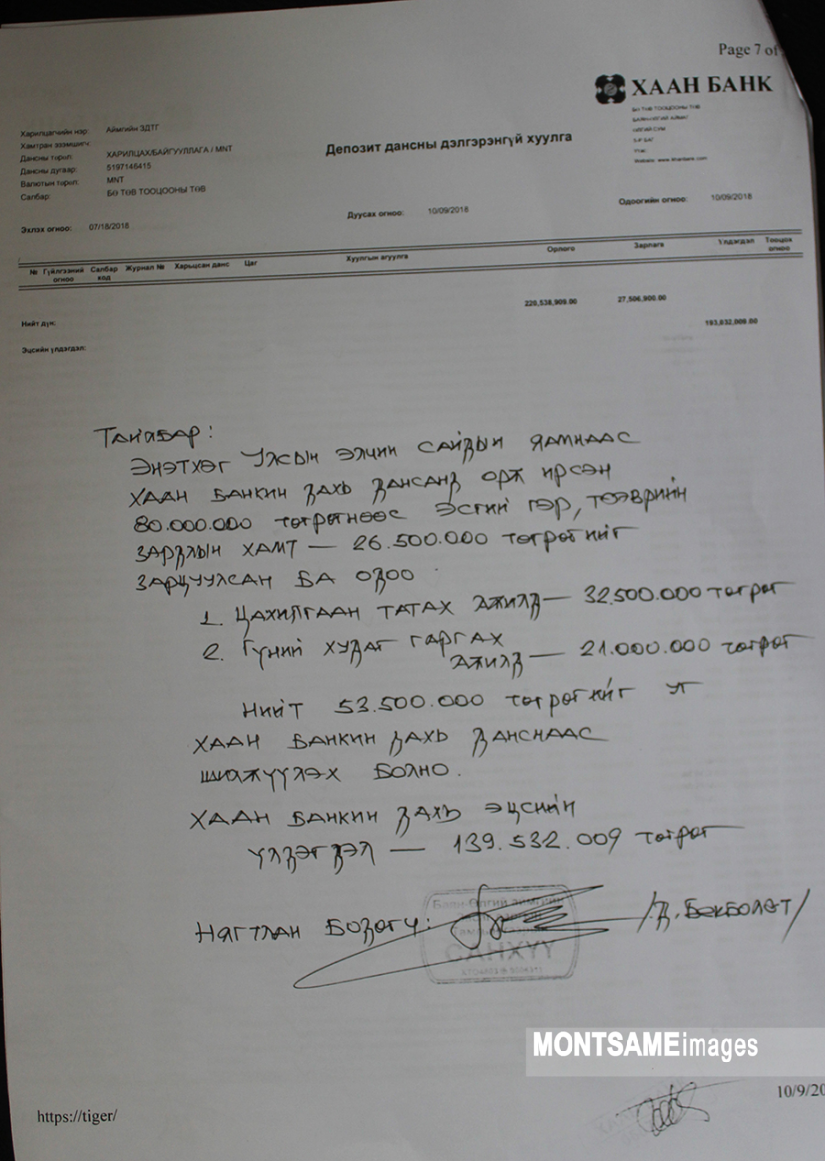 Page 7 of
ХААН БАНК
БӨ ТӨВ ТООЦООНЫ ТӨВ
БАЯН-ӨЛГИЙ АЙМАГ
ӨЛГИЙ СУМ
5-Р БАГ
Утас:
Website: www.khanbank.com
Харилцагчийн нэр: Аймгийн ЗДТГ
Хамтран эзэмшигч:
Дансны төрөл: ХАРИЛЦАХ/БАЙГУУЛЛАГА / MNT
Дансны дугаар: 5197146415
Валютын төрөл: MNT
Салбар: БӨ ТӨВ ТООЦООНЫ ТӨВ
Депозит дансны дэлгэрэнгүй хуулга
Эхлэх огноо: 07/18/2018 Дуусах огноо: 10/09/2018 Одоогийн огноо: 10/09/2018
№ Гүйлгээний огноо Салбар код Журнал № Харьцсан данс Цаг Хуулгын агуулга Орлого Зарлага Үлдэгдэл Тооцоо огноо
Нийт дүн: 27,506,900.00
Эцсийн үлдэгдэл:
Тайлбар:
Энэтхэг Улсын элчин сайдын яамнаас
Хаан банкин дахь дансанд орж ирсэн
80.000.000 төгрөгнөөс эсгий гэр, тээврийн
зардлын хамт — 26.500.000 төгрөгийг
зарцуулсан ба одоо
1. Цахилгаан татах ажилд — 32.500.000 төгрөг
2. Гүний худаг гаргах
ажилд — 21.000.000 төгрөг
Нийт 53.500.000 төгрөгийг уг
Хаан банкин дахь данснаас
шилжүүлэх болно.
Хаан банкин дахь эцсийн
үлдэгдэл — 139.532.009 төгрөг
Нягтлан бодогч: /Д.Бекболат/
Баян-Өлгий аймгийн
САНХҮҮ
MONTSAMEimages
https://tiger/
10/9/20